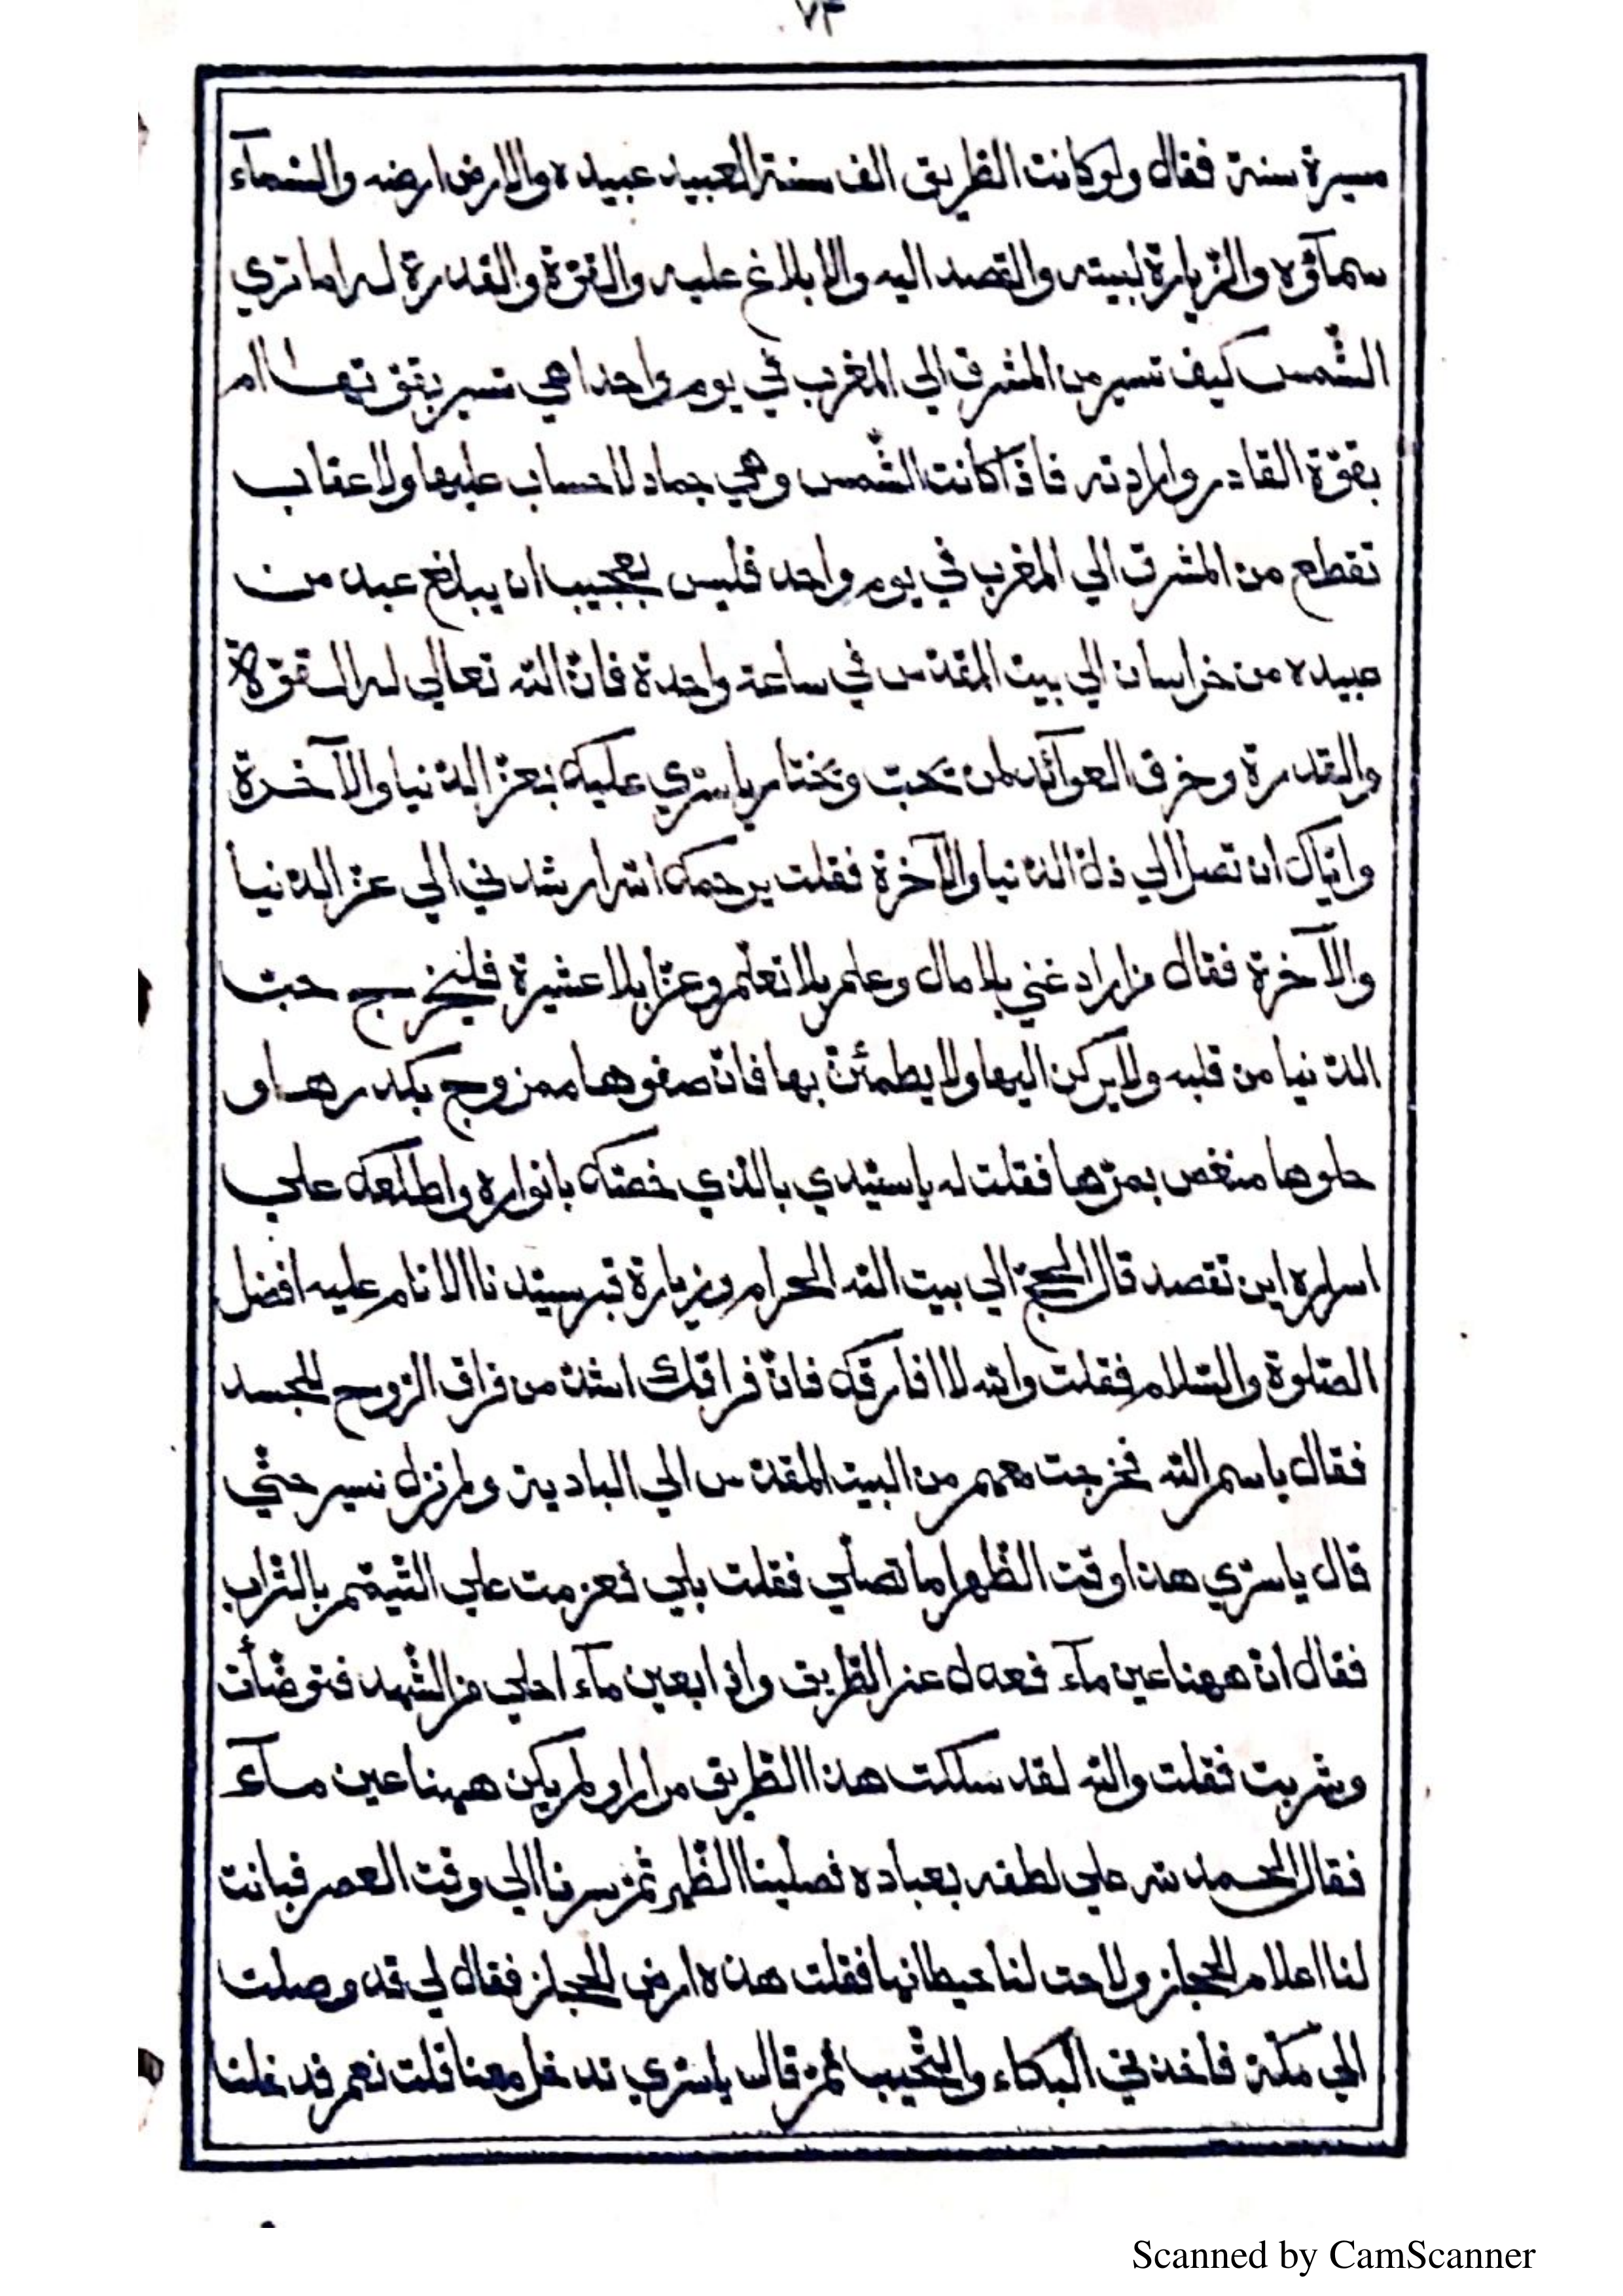 ٧٣
مسيرة سنة فقال ولو كانت الطريق الف سنة العبيد عبيده والارض ارضه والسّمآء
سمآؤه والزّيارة لبيته والقصد اليه والابلاغ عليه والقوّة والقدرة له اما تري
الشّمس كيف تسير من المشرق الي المغرب في يوم واحد اهي تسير بقوّتها ام
بقوّة القادر وارادته فاذا كانت الشّمس وهي جماد لا حساب عليها ولا عقاب
تقطع من المشرق الي المغرب في يوم واحد فليس بعجيب ان يبلغ عبد من
عبيده من خراسان الي بيت المقدّس في ساعة واحدة فانّ اللّه تعالي له القوّة
والقدرة وخرق العوآئد لمن تحبّ وتختار يا سرّي عليك بعزّ الدّنيا والآخرة
وايّاك ان تصل الي ذلّ الدّنيا والآخرة فقلت يرحمك اللّه ارشدني الي عزّ الدّنيا
والآخرة فقال من اراد غني بلا مال وعلم بلا تعلّم وعزّا بلا عشيرة فليخرج حبّ
الدّنيا من قلبه ولا يركن اليها ولا يطمئنّ بها فانّ صفوها ممزوج بكدرها و
حلوها منغص بمرّها فقلت له يا سيّدي بالّذي خصّك بانواره واطلعك علي
اسراره اين تقصد قال الحجّ الي بيت اللّه الحرام وزيارة قبر سيّدنا الانام عليه افضل
الصّلوة والسّلام فقلت واللّه لا افارقك فانّ فراقك اشدّ من فراق الرّوح للجسد
فقال باسم اللّه فخرجت معهم من البيت المقدّس الي البادية ولم نزل نسير حتّي
قال يا سرّي هذا وقت الظّهر اما تصلّي فقلت بلي فعزمت علي التّيمّم بالتّراب
فقال انّ ههنا عين مآء فعدل عن الطّريق واذا بعين مآء احلي من الشّهد فتوضّأت
وشربت فقلت واللّه لقد سلكت هذا الطّريق مرارا ولم يكن ههنا عين مآء
فقال الحمد للّه علي لطفه بعباده فصلينا الظّهر ثمّ سرنا الي وقت العصر فبانت
لنا اعلام الحجاز ولاحت لنا حيطانها فقلت هذه ارض الحجاز فقال لي قد وصلت
الي مكّة فاخذني البكاء والنّحيب ثمّ قال يا سرّي تدخل معنا قلت نعم فدخلنا
Scanned by CamScanner